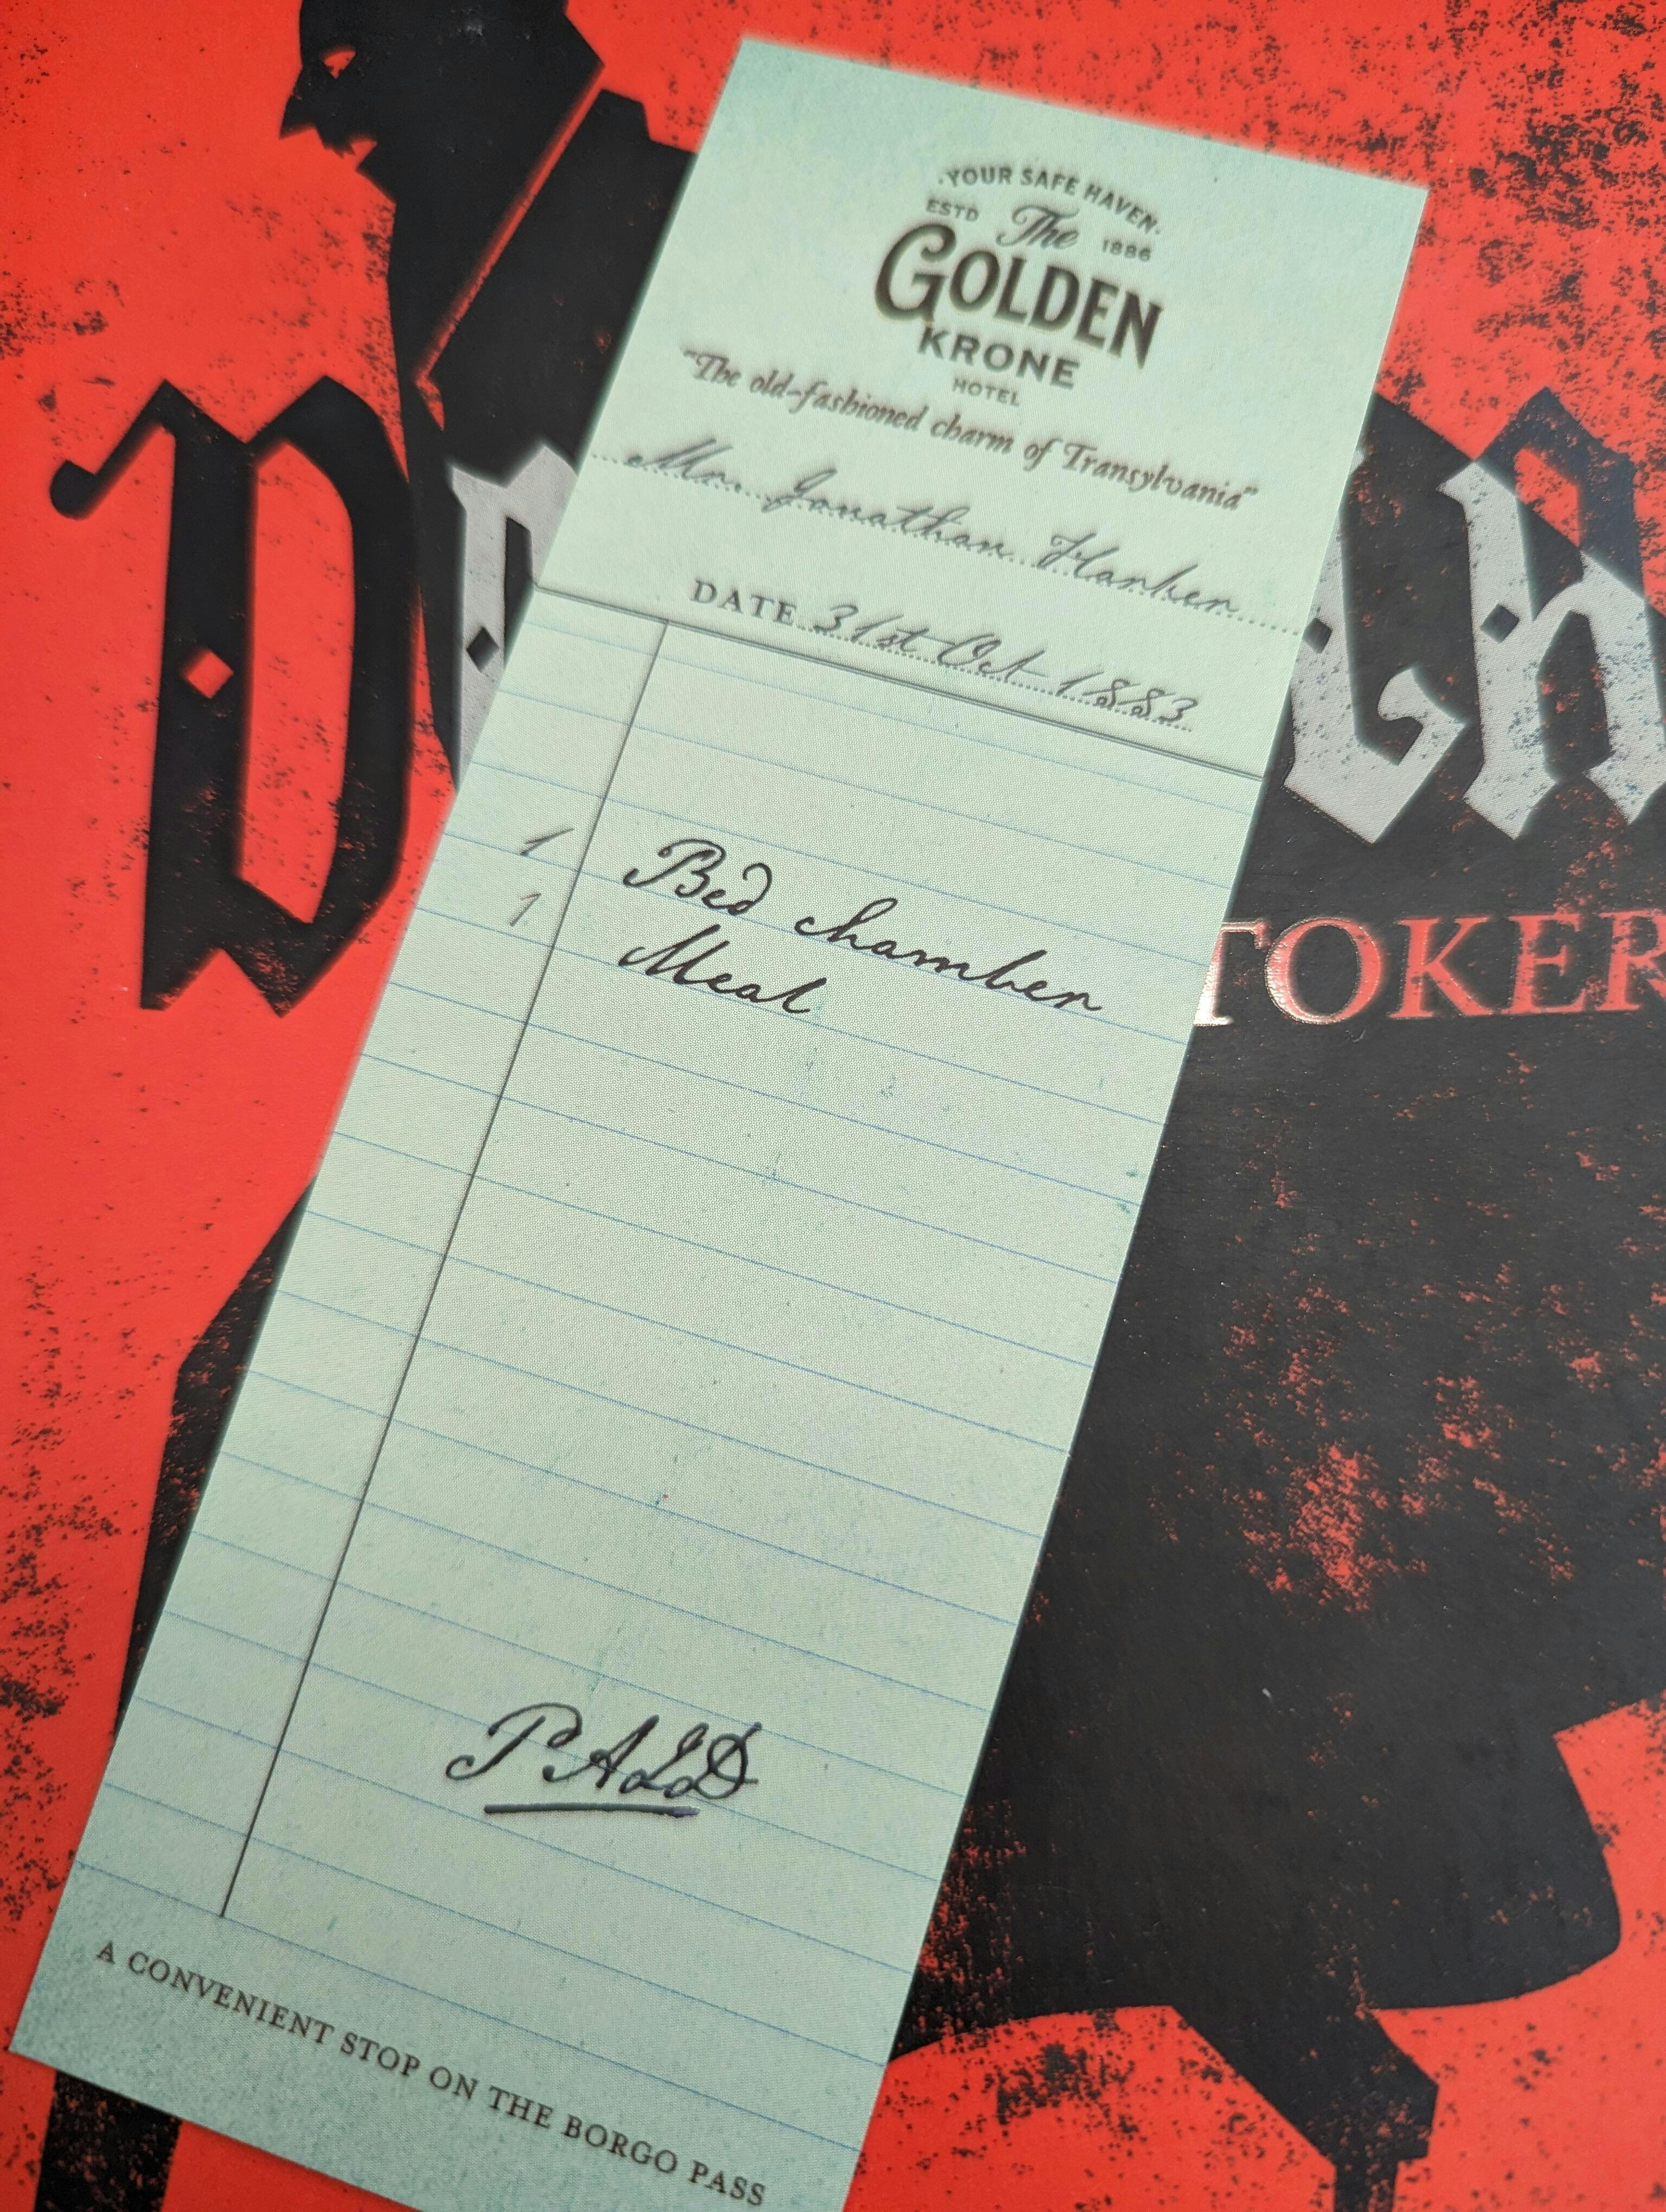 ·YOUR SAFE HAVEN·
ESTD The 1886
GOLDEN
KRONE
HOTEL
"The old-fashioned charm of Transylvania"
Mr. Jonathan Harker
DATE 31st Oct 1883
1 Bed chamber
1 Meal
PAID
A CONVENIENT STOP ON THE BORGO PASS
TOKER